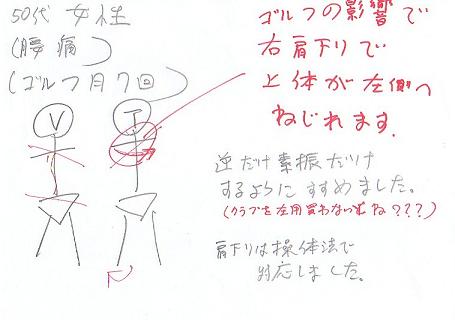 50代 女性
(腰痛)
(ゴルフ月7回)
V
T
ゴルフの影響で
右肩下りで
上体が左側へ
ねじれます.
逆だけ素振だけ
するようにすすめました。
(クラブを左用買わないとね???)
肩下りは操体法で
対応しました。